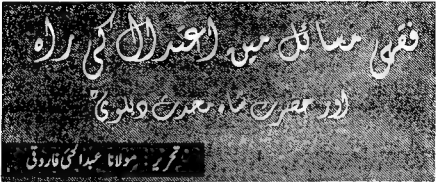 فقہی مسائل میں اعتدال کی راہ
اور حضرت شاہ محدث دہلویؒ
تحریر: مولانا عبدالحئی فاروقی